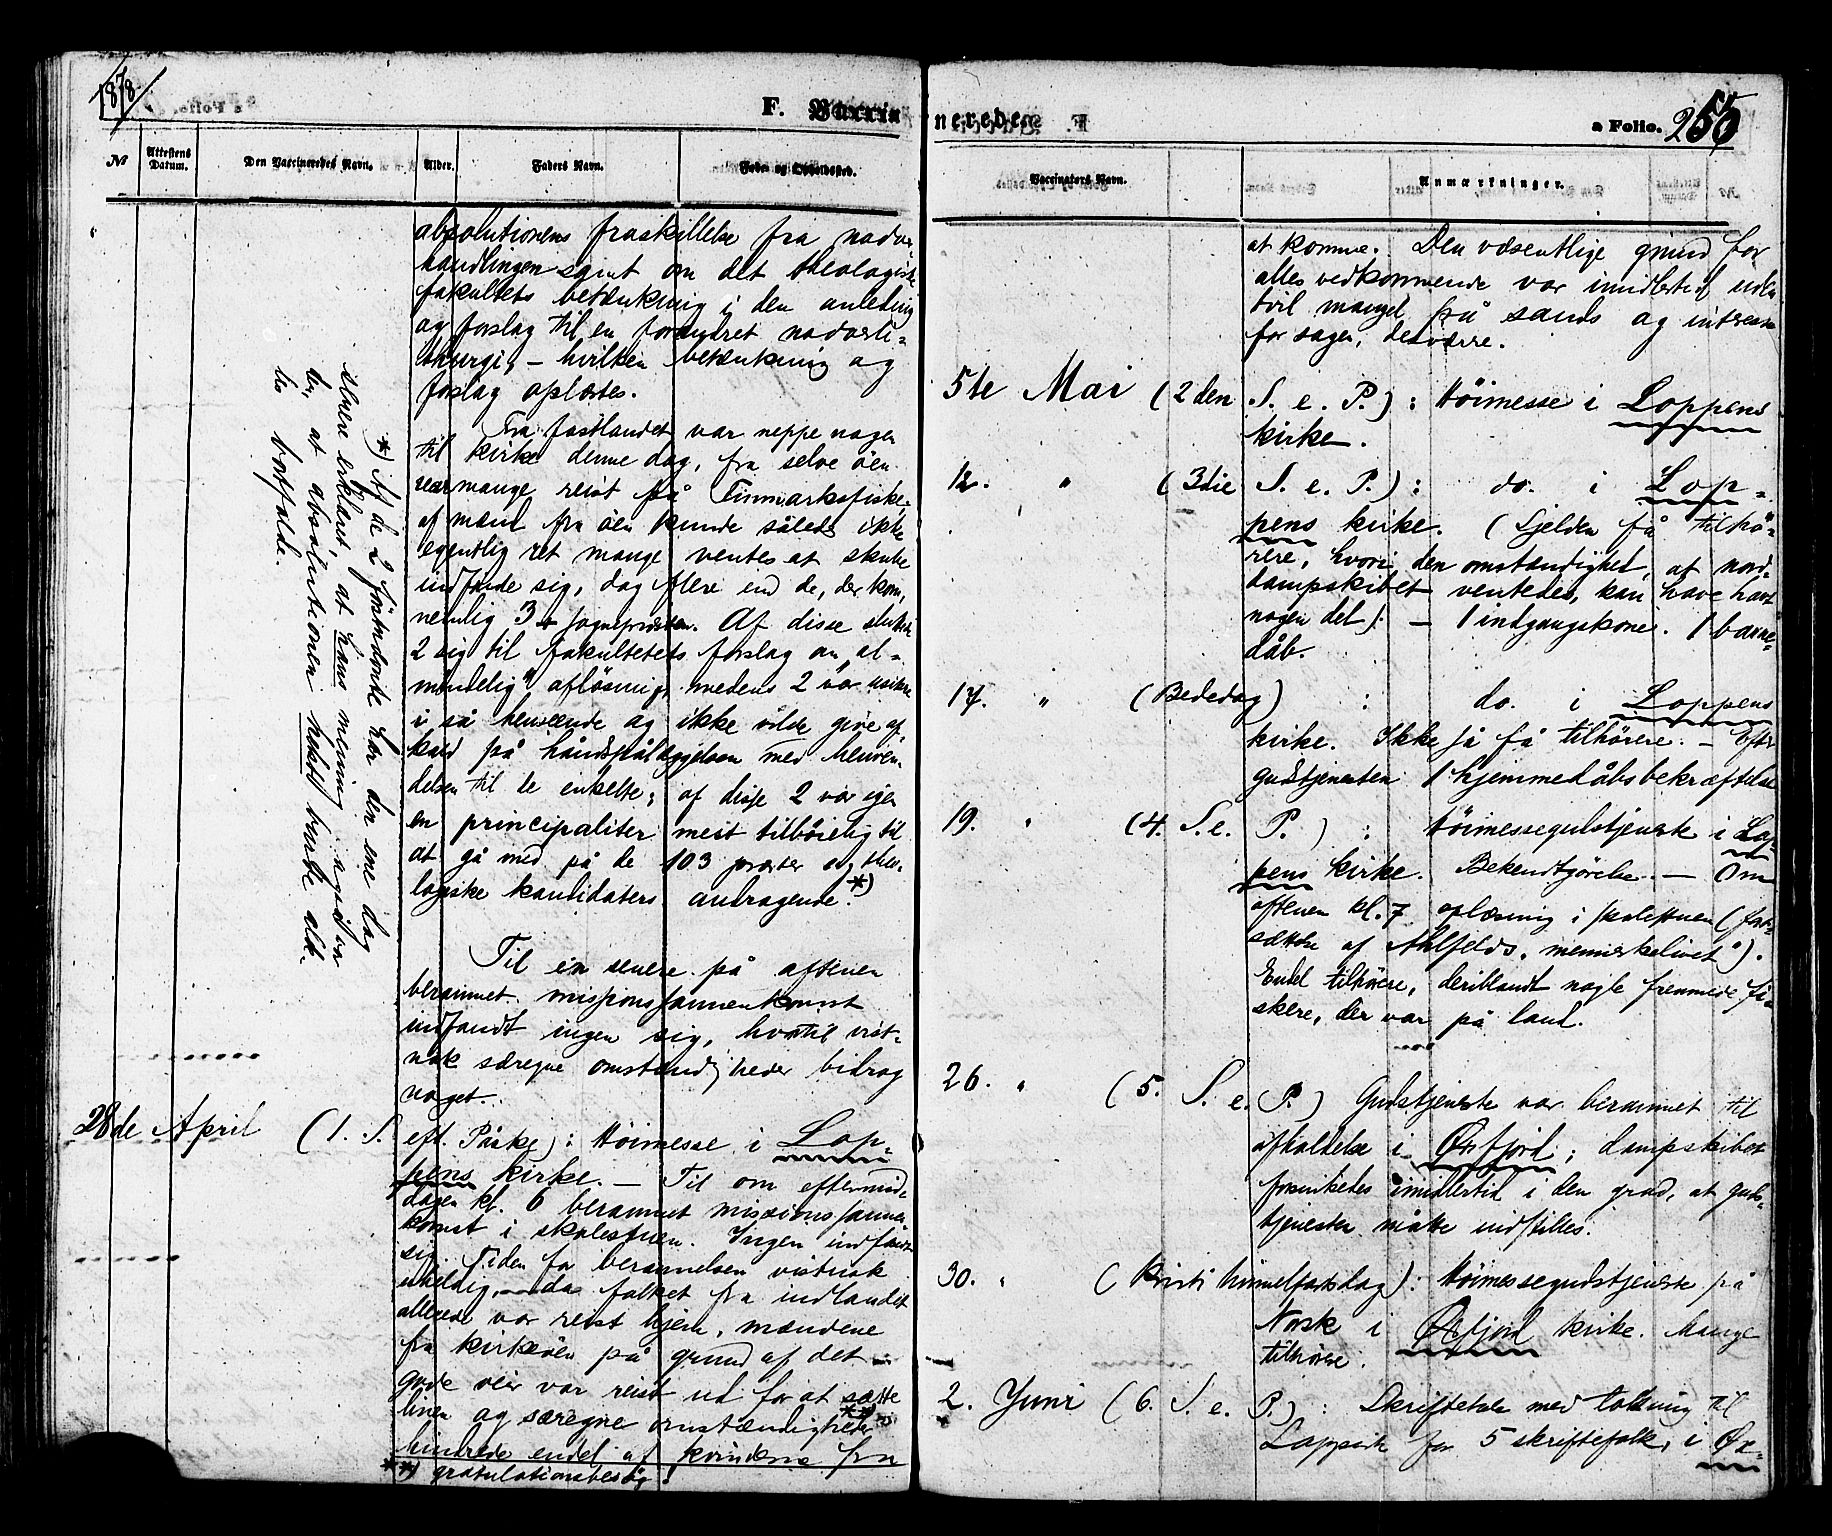 1878.
F. Vaccin
№
Attestens Datum.
Den Vaccineredes Navn.
Alder.
Faders Navn.
Føde- og Opholdssted.
absolutionens fraskillelse fra nadver-
handlingen samt om det theologiske
fakultets betænkning i den anledning
og forslag til en forandret nadverli-
thurgi, – hvilken betænkning og
forslag oplæstes.
Fra fastlandet var neppe nogen
til kirke denne dag, fra selve øen
var mange reist på Finmarksfiske;
af mænd fra øen kunde således ikke
egentlig ret mange ventes at skulle
indfinde sig, dog flere end de, der kom,
nemlig 3 + sognepræsten. Af disse sluttede
2 sig til fakultetets forslag om „al-
mindelig" afløsning, medens 2 var usikre
i så henseende og ikke vilde give af-
kald på håndspålæggelsen med henven-
delsen til de enkelte; af disse 2 var igen
en principaliter mest tilbøielig til
at gå med på de 103 præster og theo-
logiske kandidaters andragende.*)
Til en senere på aftenen
berammet missionssammenkomst
indfandt ingen sig, hvortil vist-
nok særegne omstændigheder bidrog
noget.
28de April (1. S.
eft. Påske): Høimesse i Lop-
pens kirke. – Til om eftermid-
dagen kl. 6 berammet missionssammen-
komst i skolestuen. Ingen indfandt
sig. Tiden for berammelsen vistnok
uheldig, – da folket fra indlandet
allerede var reist hjem, mændene
fra kirkeøen på grund af det
gode veir var reist ud for at sætte
linen og særegne omstændigheder**)
hindrede endel af kvinderne fra
**) gratulationsbesøg!
*) Af de 2 førstnævnte har den ene dag
senere erklæret, at hans mening også var
den, at absolutionen helst burde aldeles
bortfalde.
nerede.
a Folio. 255
Vaccinators Navn.
Anmærkninger.
at komme. Den væsentlige grund for
alles vedkommende var imidlertid uden
tvil mangel på sands og interesse
for sagen, desværre.
5te Mai (2den S. e. P.): Høimesse i Loppens
kirke.
12. " (3die S. e. P.): do. i Lop-
pens kirke. (Sjelden få tilhø-
rere, hvori den omstændighed, at nord-
dampskibet ventedes, kan have havt
nogen del). – 1 indgangskone. 1 barne-
dåb.
17. " (Bededag) : do. i Loppens
kirke. Ikke så få tilhørere. – Efter
gudstjenesten 1 hjemmedåbsbekræftelse
19. " (4. S. e. P.) : Høimessegudstjeneste i Lop-
pens kirke. Bekendtgørelse. – Om
aftenen kl. 7 oplæsning i skolestuen (fort-
sættelse af Ahlfelds „menneskelivet").
Endel tilhørere, deriblandt nogle fremmede fi-
skere, der var på land.
26. " (5. S. e. P.) Gudstjeneste var berammet til
afholdelse i Øxfjord; dampskibet
forsinkedes imidlertid i den grad, at guds-
tjenesten måtte indstilles.
30. " (Kristi himmelfartsdag): Høimessegudstjeneste på
Norsk i Øxfjord kirke. Mange
tilhørere.
2. Juni (6. S. e. P.) : Skriftetale med tolkning til
Lappisk for 5 skriftefolk, i Øx-